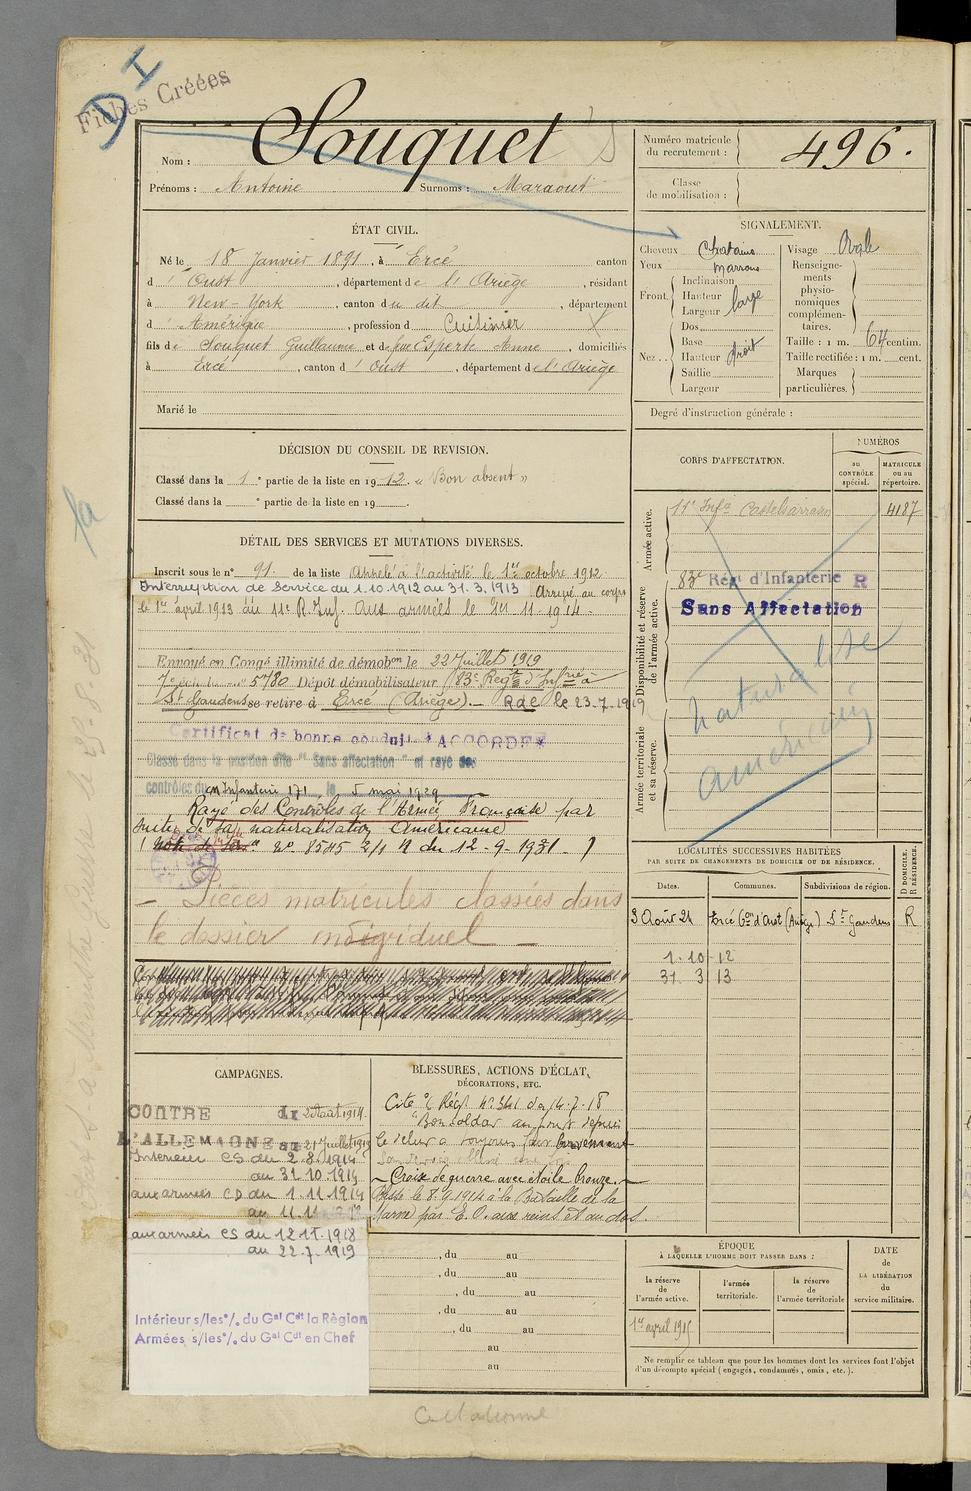 I
Fiches Créées
Nom : Souquet
Prénoms : Antoine Surnoms : Maraout
Numéro matricule du recrutement : 496.
Classe de mobilisation :
ÉTAT CIVIL.
Né le 18 Janvier 1891, à Ercé canton
d' Oust, département de l'Ariège, résidant
à New-York, canton du dit, département
d' Amérique, profession d Cuisinier
fils de Souquet Guillaume et de feue Esperte Anne, domiciliés
à Ercé, canton d' Oust, département de l'Ariège
Marié le
SIGNALEMENT.
Cheveux Chatains
Yeux Marrons
Front. Inclinaison
Hauteur
Largeur large
Nez. Dos.
Base
Hauteur droit
Saillie
Largeur
Visage Ovale
Renseignements physionomiques complémentaires.
Taille : 1 m. 64 centim.
Taille rectifiée : 1 m. cent.
Marques particulières.
Degré d'instruction générale :
DÉCISION DU CONSEIL DE REVISION.
Classé dans la 1e partie de la liste en 1912. « Bon absent »
Classé dans la e partie de la liste en 19 .
CORPS D'AFFECTATION.
NUMÉROS
au CONTRÔLE spécial.
MATRICULE ou au répertoire.
Armée active.
11e Infie Castelsarrasin 4187
Disponibilité et réserve de l'armée active.
83e Régt d'Infanterie R
Sans Affectation
Armée territoriale et sa réserve.
naturalisé
américain
DÉTAIL DES SERVICES ET MUTATIONS DIVERSES.
Inscrit sous le no 91 de la liste Appelé à l'activité le 1er octobre 1912
Interruption de Service du 1.10.1912 au 31.3.1913 Arrivé au corps
le 1er avril 1913 au 11e R. Inf. Aux armées le 1er 11-1914.
Envoyé en Congé illimité de démobon le 22 Juillet 1919
5780 Dépôt démobilisateur (83e Regt d'Infrie à
St Gaudens se retire à Ercé (Ariège). Rdc le 23.7.1919
Certificat de bonne conduite ACCORDÉ
Classé dans la position dite "Sans affectation" et rayé des
contrôles du Infanterie 171 le 5 mai 1929
Rayé des Contrôles de l'Armée Française par
suite de sa naturalisation Américaine
no 8545 2/1 du 12-9-1931
– Pièces matricules classées dans
le dossier individuel –
LOCALITÉS SUCCESSIVES HABITÉES
PAR SUITE DE CHANGEMENTS DE DOMICILE OU DE RÉSIDENCE.
Dates. Communes. Subdivisions de région. D DOMICILE. R RÉSIDENCE.
3 Août 24 Ercé Con d'Oust (Ariège) St Gaudens R
1.10-12
31. 3 13
CAMPAGNES.
CONTRE du 2 Août 1914
L'ALLEMAGNE au 21 Juillet 1919
Intérieur CS du 2.8.1914
au 31.10.1914
aux armées CD du 1.11.1914
au 11.11
aux armées CS du 12.11.1918
au 22.7.1919
Intérieur s/les°/. du Gal Cdt la Région
Armées s/les°/. du Gal Cdt en Chef
BLESSURES, ACTIONS D'ÉCLAT,
DÉCORATIONS, ETC.
Cité Régt No 341 du 14-7-18
"Bon soldat au front depuis
le début a toujours fait bravement
son devoir
Croix de guerre avec étoile bronze.
Blessé le 8.9.1914 à la Bataille de la
Marne par E.O. aux reins et au dos.
, du au
, du au
, du au
, du au
, du au
au
au
ÉPOQUE
À LAQUELLE L'HOMME DOIT PASSER DANS :
la réserve de l'armée active.
l'armée territoriale.
la réserve de l'armée territoriale
DATE de LA LIBÉRATION du service militaire.
1er avril 1915
Ne remplir ce tableau que pour les hommes dont les services font l'objet
d'un décompte spécial (engagés, condamnés, omis, etc.).
Collationné